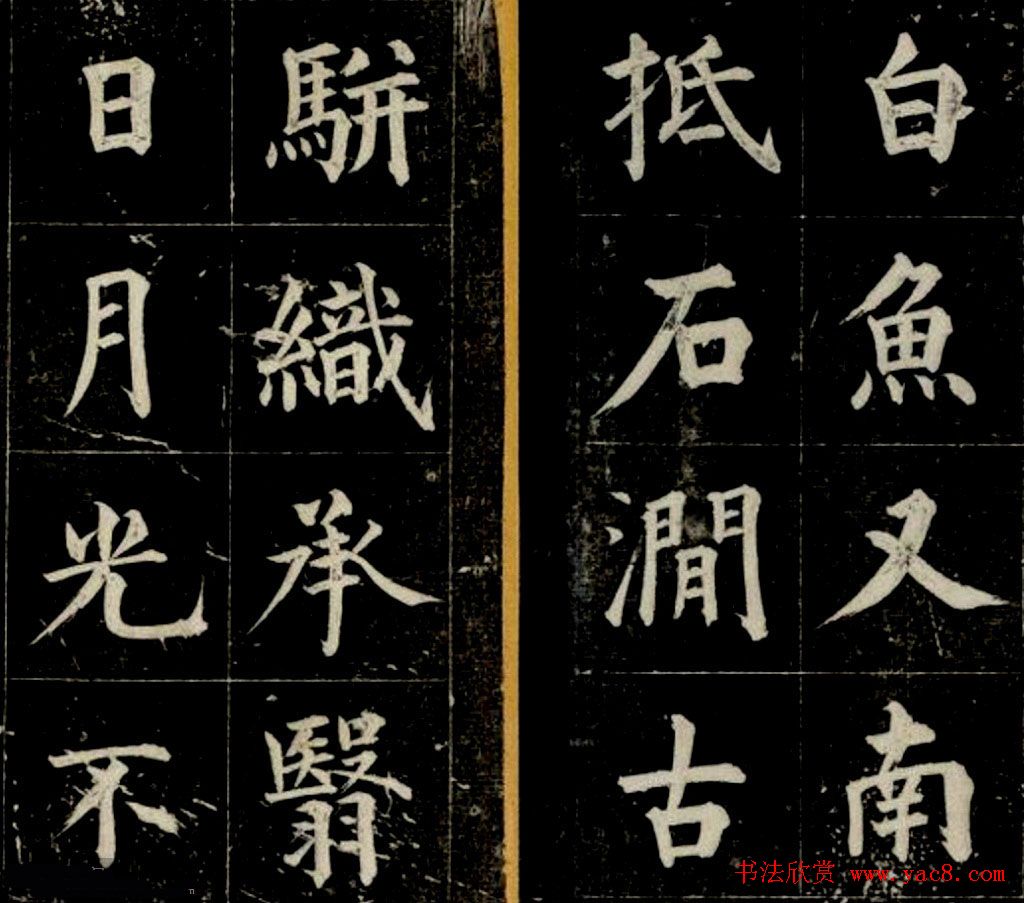 白魚又南
抵石澗古
駢織承翳
日月光不
书法欣赏 www.yac8.com